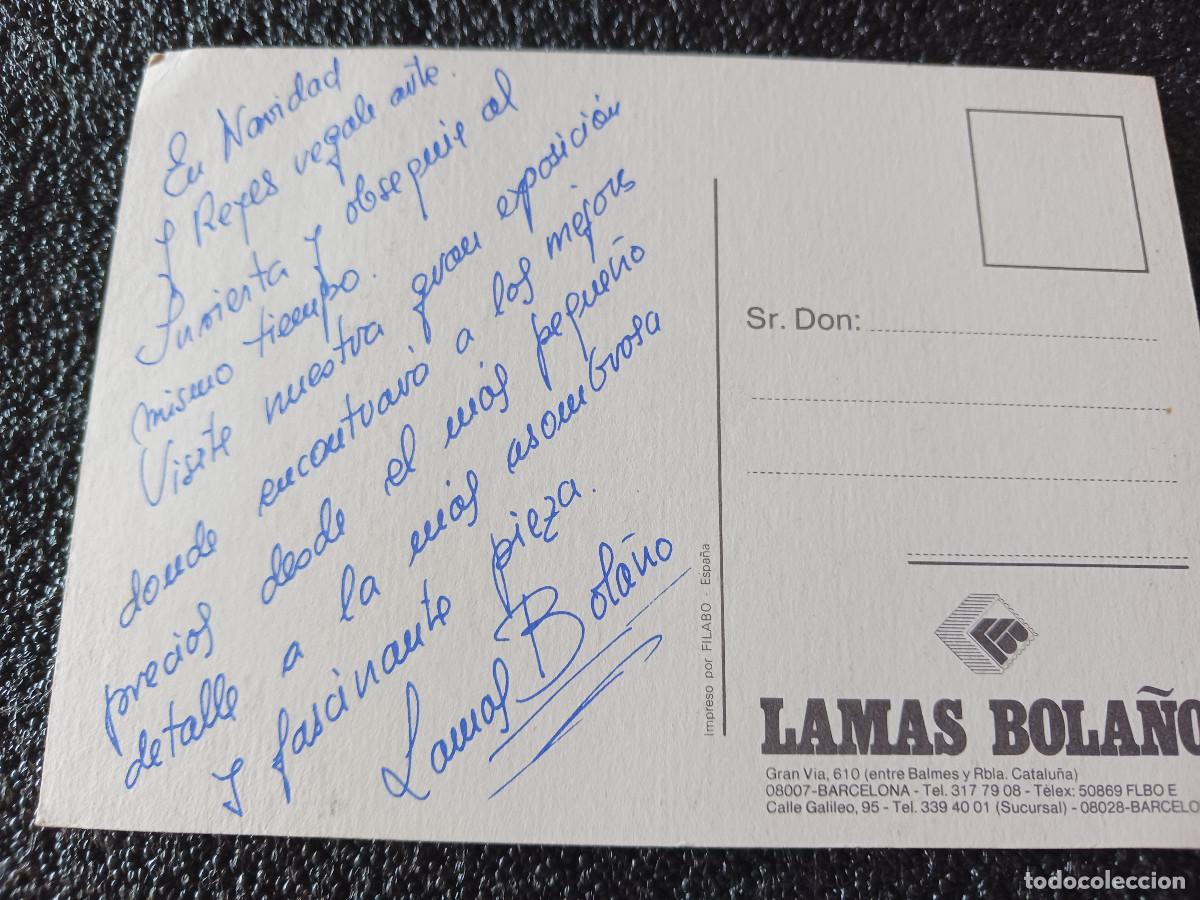 En Navidad
y Reyes regale arte.
Invierta y obsequie al
mismo tiempo.
Visite nuestra gran exposición
donde encontrará a los mejores
precios desde el más pequeño
detalle a la más asombrosa
y fascinante pieza.
Lamas Bolaño
Impreso por FILABO - España
Sr. Don:
LAMAS BOLAÑO
Gran Via, 610 (entre Balmes y Rbla. Cataluña)
08007-BARCELONA - Tel. 317 79 08 - Télex: 50869 FLBO E
Calle Galileo, 95 - Tel. 339 40 01 (Sucursal) - 08028-BARCELO
todocoleccion